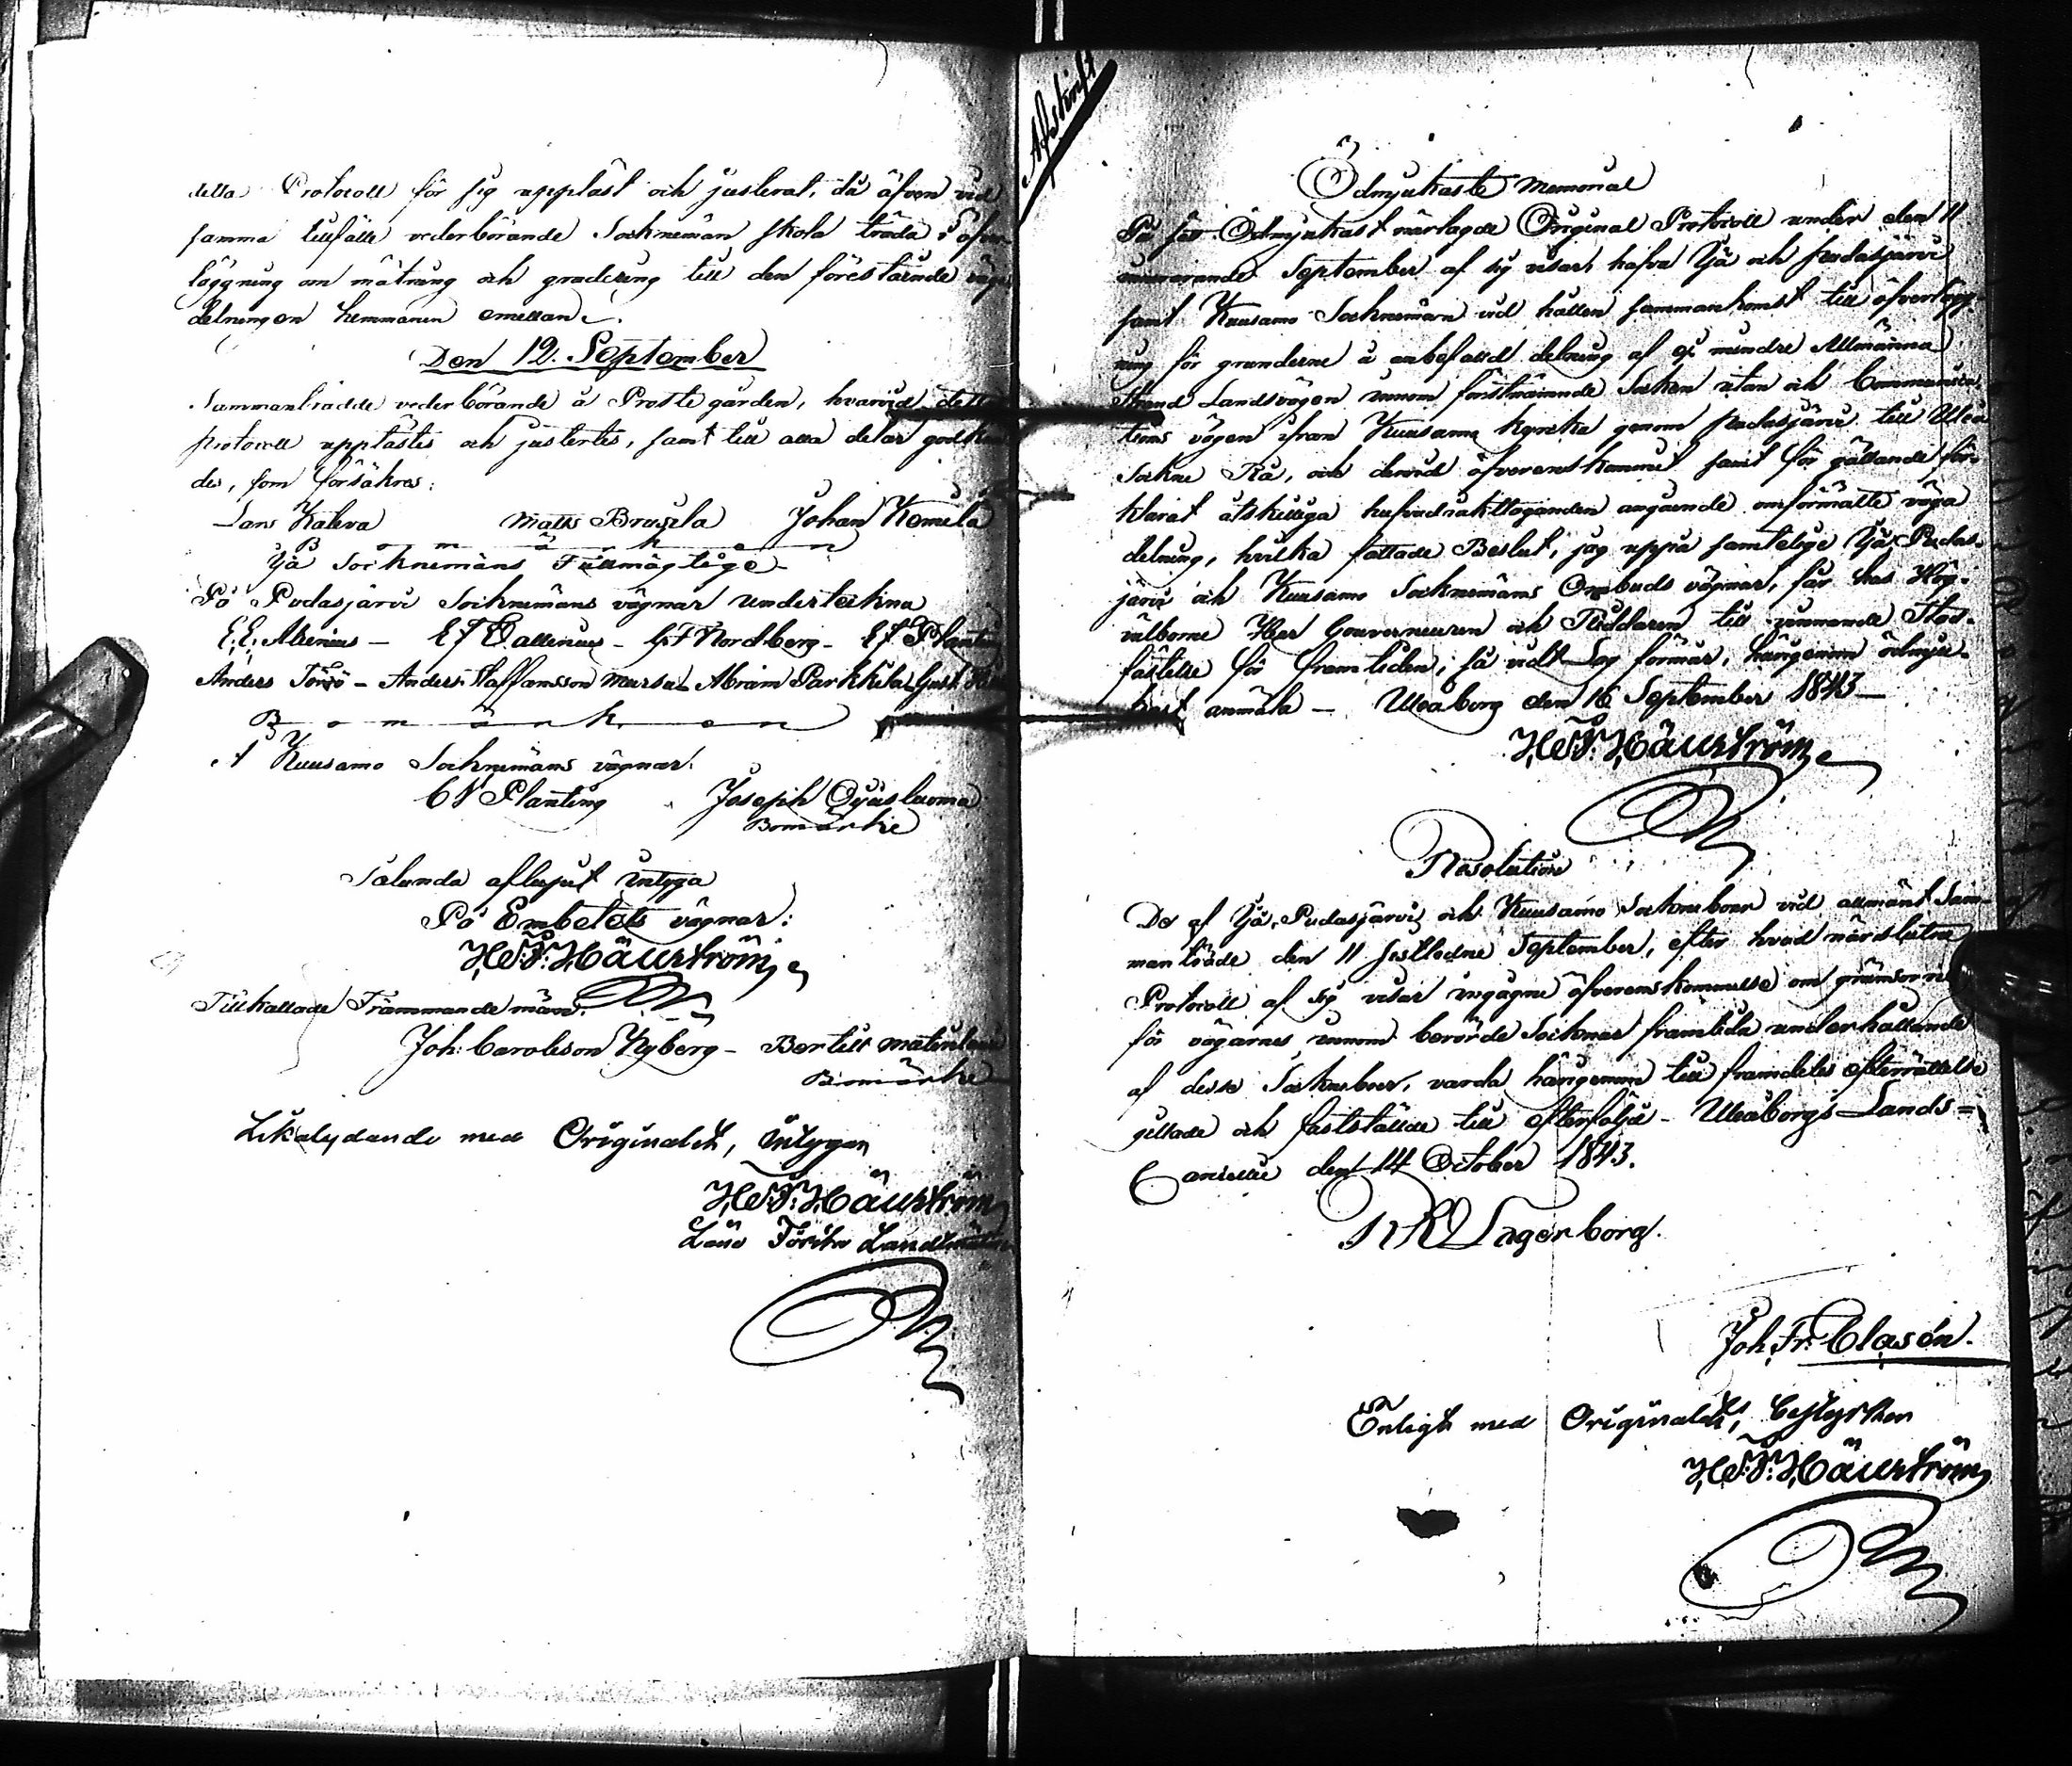 detta Protocoll för sig uppläst och justerat, då äfven vid
samma tillfälle vederbörande Socknemän skola träda i öfver
läggning om mätning och gradering till den förestående väg
delningen hemmanen emellan.
Den 12. September
Sammanträdde vederbörande å Prostegården, hvarvid detta
protocoll upplästes och justertes, samt till alla delar godkän
des, som försäkras:
Lars Kaleva Matts Brusila Johan Komula
Bomärken
Ijå Socknemäns Fullmägtige
På Pudasjärvi Socknemäns vägnar underteckna
E. E. Alcenius - E J Wallenius - G F Nordberg - E J Planting
Anders Törrö - Anders Staffansson Mursa - Abram Parkkila - Gust.
Bomärken
Å Kuusamo Socknemäns vägnar.
C N Planting Joseph Oijusluoma
Bomärke
Sålunda aflupit intyga
På Embetets vägnar:
H. F. Hällström
Tillkallade Främmande män.
Joh: Carolison Nyberg - Bertill
Bomärke
Likalydande med Originalet, intygar
H. F. Hällström
Länd Förste Landtmätare
Afskrift
Ödmjukaste Memorial
På sätt Ödmjukast närlagde Original Protocoll under den 11
innevarande September af sig visar, hafva Ijå och Pudasjärvi
samt Kuusamo Socknemän vid hållen sammankomst till öfverlägg-
ning för grunderne å anbefalld delning af ej mindre Allmänna
Strand Landsvägen innom förstnämnde Socken utan och Communica
tions vägen ifrån Kuusamo Kyrcka genom Pudasjärvi till Uleå
Sockne Rå, och dervid öfverenskommit samt för gällande för-
klarat åtskilliga hufvudiakttaganden angående omförmälte väga
delning, hvilka fattade Beslut, jag uppå samtelige Ijå, Pudas-
järvi och Kuusamo Socknemäns Ombuds vägnar, får hos Hög-
välborne Herr Gouverneuren och Riddaren till vinnande Stad-
fästelse för framtiden, så vidt Lag förmår, härigenom ödmju-
kast anmäla - Uleåborg den 16 September 1843 -
H. F. Hällström
Resolution
De af Ijå, Pudasjärvi och Kuusamo Socknebor vid allmänt Sam-
manträde den 11 sistledne September, efter hvad närslutne
Protocoll af sig visar ingågne öfverenskommelse om grunderne
för vägarnes innom berörde Socknar framtida underhållande
af desse Socknebor, varda härigenom till framdeles efterrättelse
gillade och fastställde till efterföljd - Uleåborgs Lands=
Cancellie den 14 October 1843.
R R Lagerborg.
Joh. Fr. Clasén.
Enligt med Originalet, betygar
H. F. Hällström